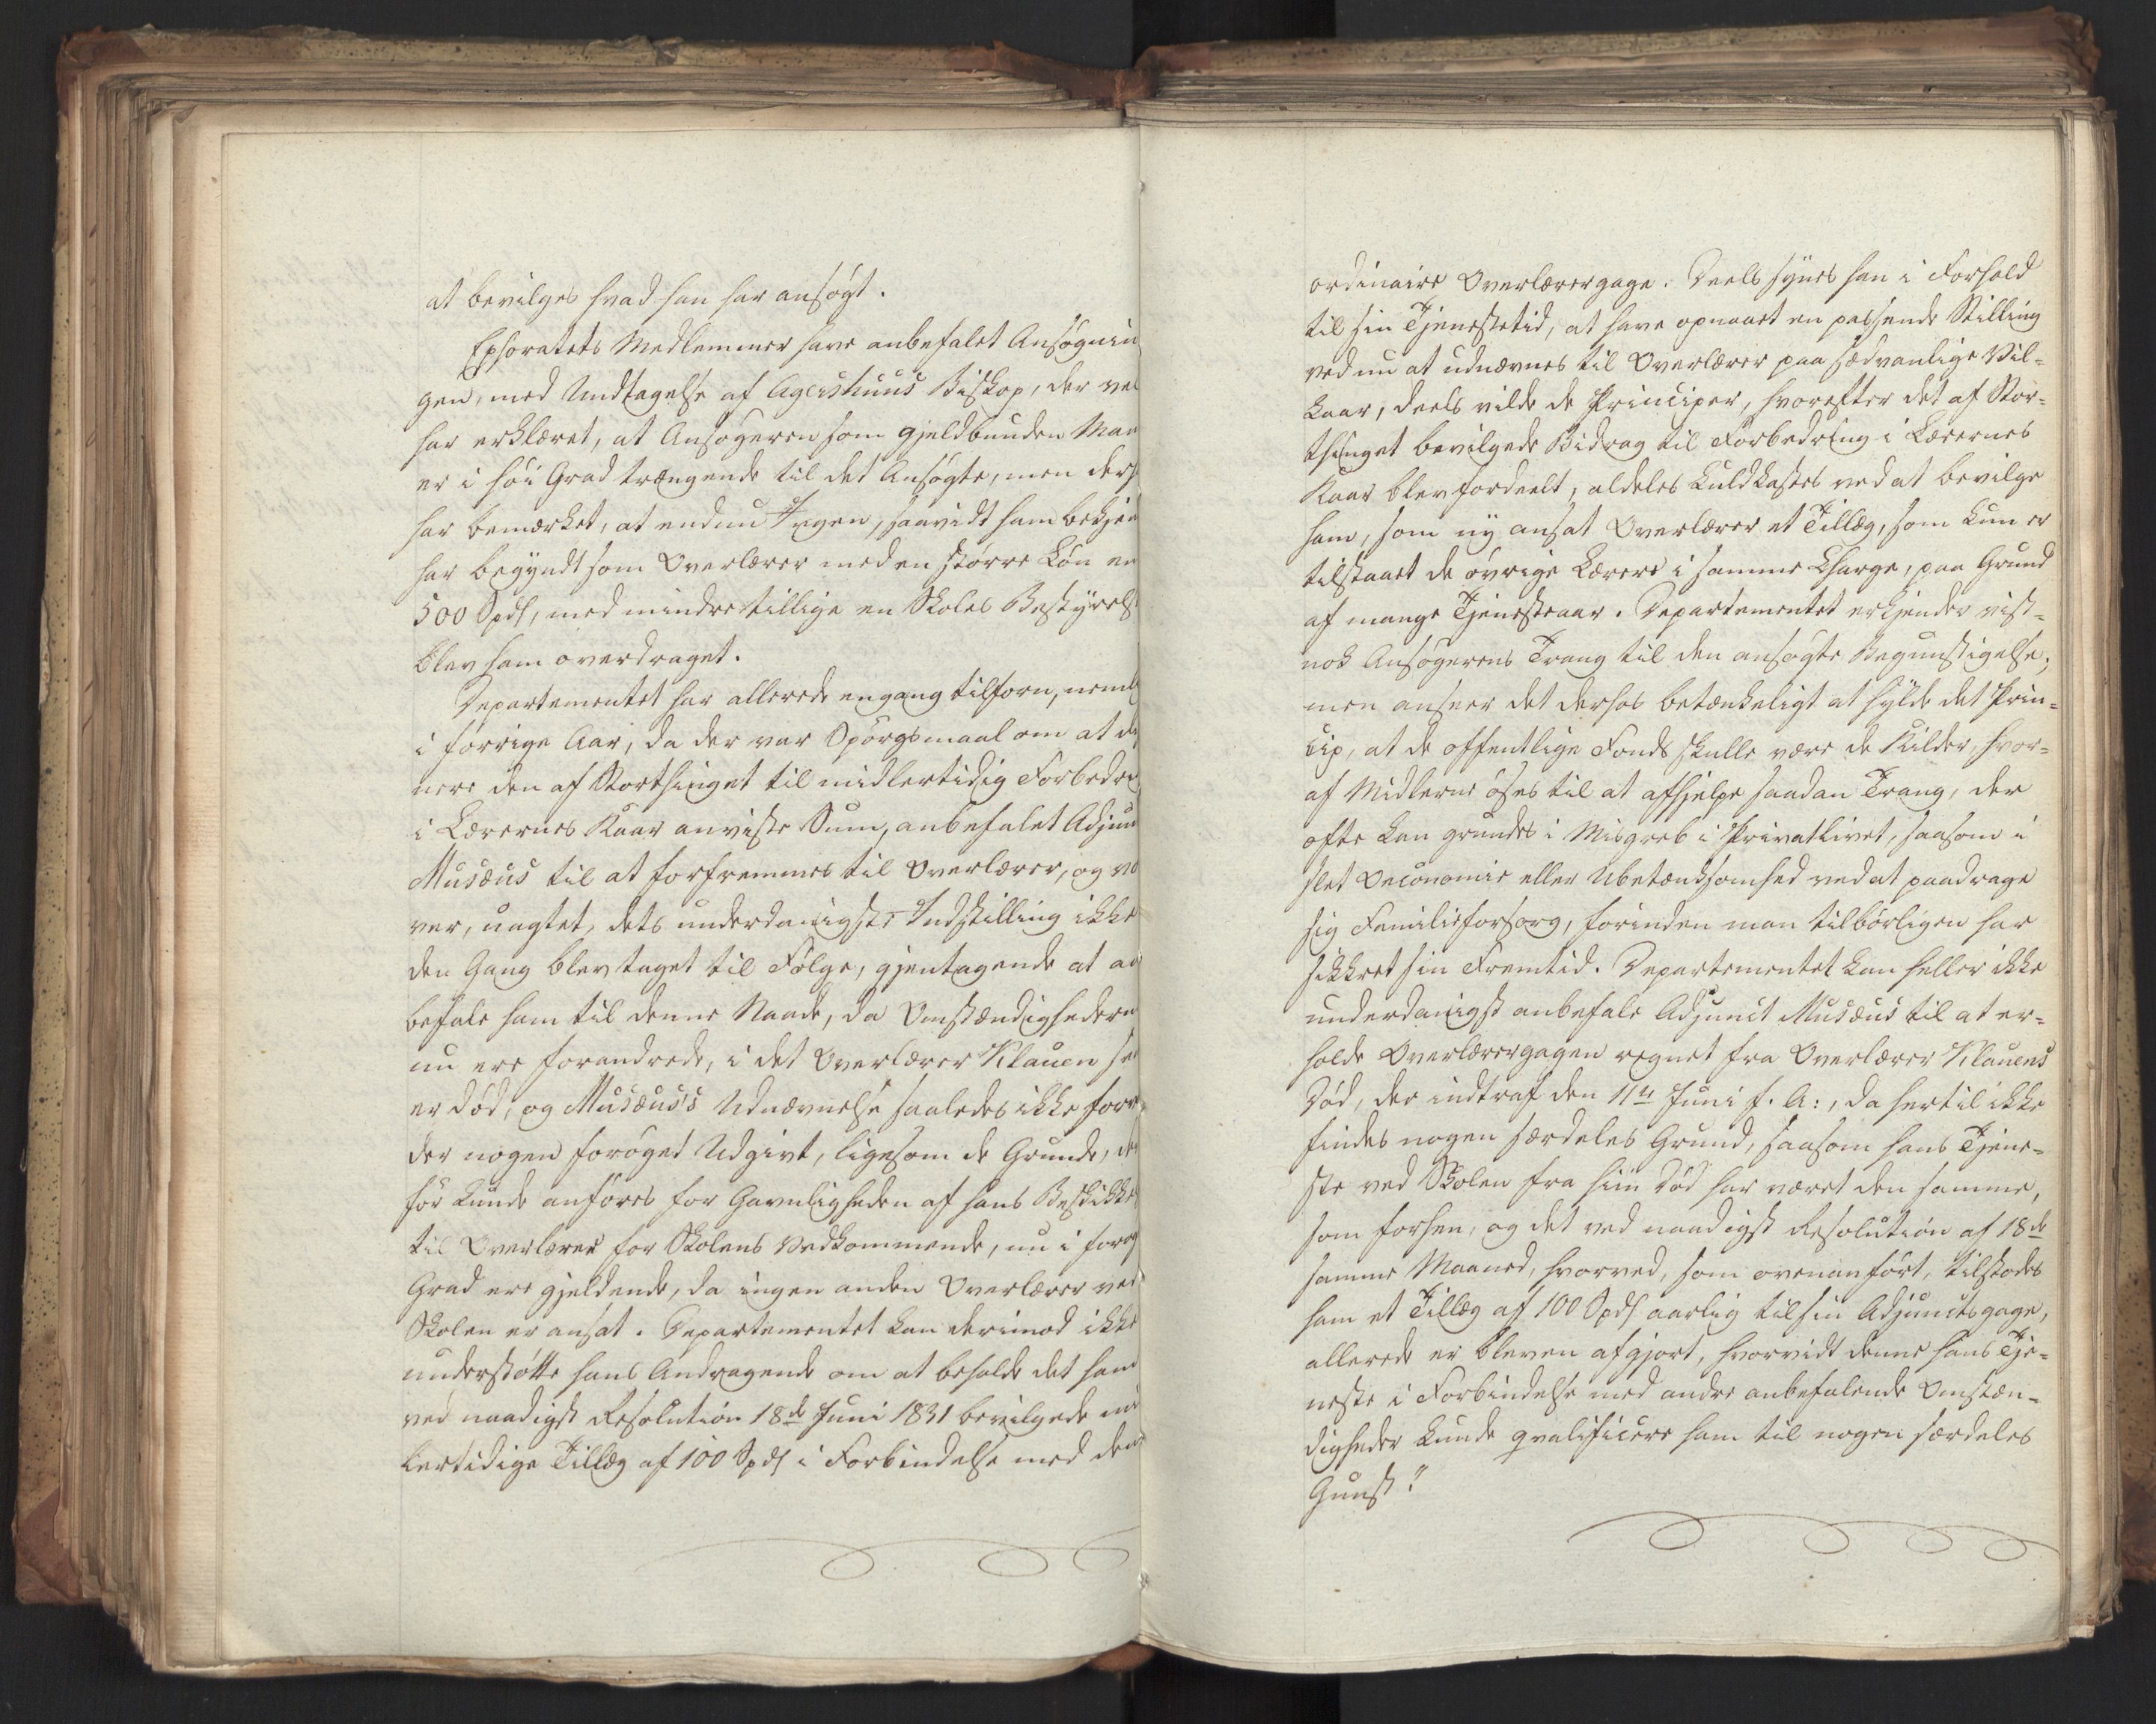 at bevilges hvad han har ansøgt.
Ephoratets Medlemmer have anbefalet Ansøgnin
gen, med Undtagelse af Agershuus Biskop, der vel
har erklæret, at Ansøgeren som gjeldbunden Man
er i høi Grad trængende til det Ansøgte, men ders
har bemærket, at endnu Ingen, saavidt ham bekjen
har begyndt som Overlærer med en større Løn en
500 Spd, med mindre tillige en Skoles Bestyrels
blev ham overdraget.
Departementet har allerede engang tilforn, neml
i forrige Aar, da der var Spørgsmaal om at
nere den af Storthinget til midlertidig Forbedri
i Lærernes Kaar anviste Sum, anbefalet Adjun
Musæus til at forfremmes til Overlærer, og vo
ver, uagtet, dets underdanigste Indstilling ikke
den Gang blev taget til Følge, gjentagende at an
befale ham til denne Naade, da Omstændighedern
nu ere forandrede, i det Overlærer Klauen
er død, og Musæus's Udnævnelse saaledes ikke
der nogen forøget Udgivt, ligesom de Grunde, de
før kunde anføres for Gavnligheden af hans Beskikke
til Overlærer for Skolens Vedkommende, nu i forøg
Grad ere gjeldende, da ingen anden Overlærer ved
Skolen er ansat. Departementet kan derimod ikke
understøtte hans Andragende om at beholde det ham
ved naadigst Resolution 18de Juni 1831 bevilgede mid
lertidige Tillæg af 100 Spd i Forbindelse med den
ordinaire Overlærergage. Deels synes han i Forhold
til sin Tjenestetid, at have opnaaet en passende Stilling
ved nu at udnævnes til Overlærer paa sædvanlige Vil-
kaar, deels vilde de Principer, hvorefter det af Stor-
thinget bevilgede Bidrag til Forbedring i Lærernes
Kaar blev fordeelt, aldeles kuldkastes ved at bevilge
ham, som ny ansat Overlærer et Tillæg, som kun er
tilstaaet de øvrige Lærere i samme Charge, paa Grund
af mange Tjenesteaar. Departementet erkjender vist-
nok Ansøgerens Trang til den ansøgte Begunstigelse;
men anseer det derhos betænkeligt at hylde det Prin-
cip, at de offentlige Fonds skulle være de Kilder, hvor-
af Midlerne øses til at afhjelpe saadan Trang, der
ofte kan grundes i Misgreb i Privatlivet, saasom i
slet Oeconomie eller Ubetænksomhed ved at paadrage
sig Familieforsorg, forinden man tilbørligen har
sikkret sin Fremtid. Departementet kan heller ikke
underdanigst anbefale Adjunct Musæus til at er-
holde Overlærergagen regnet fra Overlærer Klauens
Død, der indtraf den 11te Juni f. A:, da hertil ikke
findes nogen særdeles Grund, saasom hans Tjene-
ste ved Skolen fra hiin Død har været den samme,
som forhen, og det ved naadigst Resolution af 18de
samme Maaned, hvorved, som ovenanført, tilstodes
ham et Tillæg af 100 Spd aarlig til sin Adjunctsgage,
allerede er bleven afgjort, hvorvidt denne hans Tje-
neste i Forbindelse med andre anbefalende Omstæn-
digheder kunde qvalificere ham til nogen særdeles
Gunst."